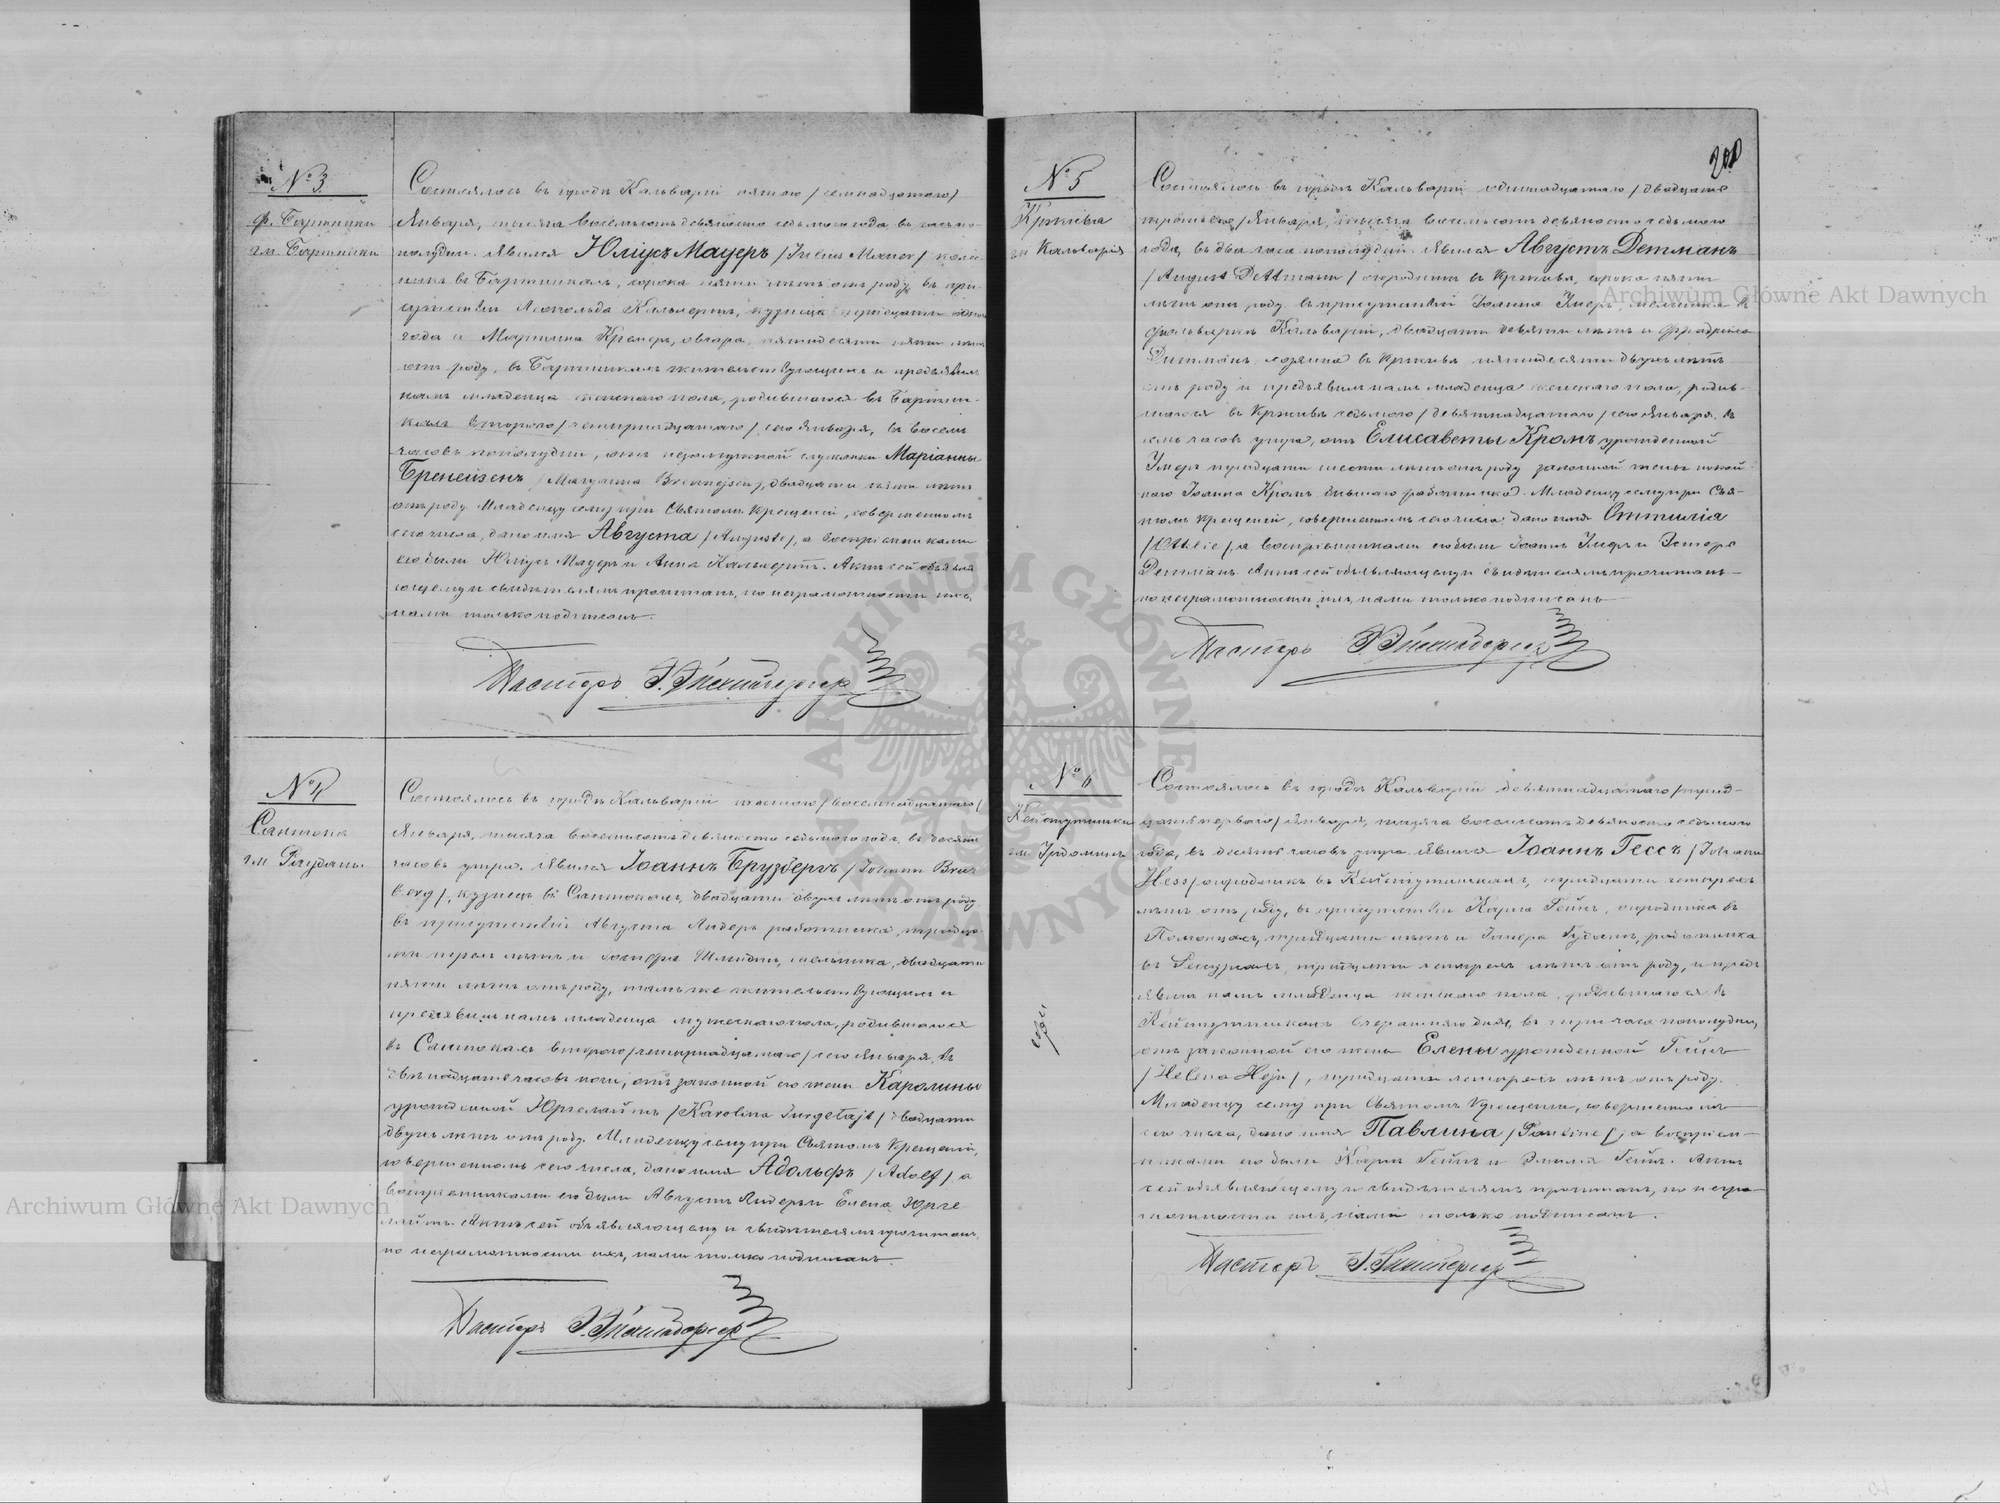 № 3
ф. Бартники
гм. Бартники
Состоялось въ городѣ Кальваріи пятаго /семнадцатаго/
Января, тысяча восемьсотъ девяносто седьмого года въ часъ по-
полудни. Явился Юліусъ Мауеръ /Julius Mauer/ коло-
нистъ въ Бартникахъ, сорока пяти лѣтъ отъ роду, въ при-
сутствіи Леопольда Кальвертъ, кузнеца тридцати одного
года и Мартина Кремеръ, овчара пятидесяти пяти лѣтъ
отъ роду, въ Бартникахъ жительствующихъ и предъявилъ
намъ младенца женскаго пола, родившагося въ Бартни-
кахъ второго /четырнадцатаго/ сего Января, въ восемь
часовъ пополудни, отъ незамужной служанки Маріанны
Бренейзенъ /Maryanna Brennejsen/, двадцати пяти лѣтъ
отъ роду. Младенцу сему при Святомъ Крещеніи, совершенномъ
сего числа, дано имя Августа /Auguste/, а воспріемниками
его были Юліусъ Мауеръ и Анна Кальвертъ. Актъ сей объявля-
ющему и свидѣтелямъ прочитанъ, по неграмотности ихъ,
нами только подписанъ.
Пасторъ
№ 4
Сантока
гм. Раудань
Состоялось въ городѣ Кальваріи шестого /восемнадцатаго/
Января, тысяча восемьсотъ девяносто седьмого года, въ десять
часовъ утра. Явился Іоаннъ Брузбергъ /Johann Brus-
berg/, кузнецъ въ Сантокахъ, двадцати двухъ лѣтъ отъ роду,
въ присутствіи Августа Лидеръ работника, тридца-
ти трехъ лѣтъ и Іосифа Шмидтъ, мельника, двадцати
пяти лѣтъ отъ роду, тамъ же жительствующихъ и
предъявилъ намъ младенца мужескаго пола, родившагося
въ Сантокахъ второго /четырнадцатаго/ сего Января, въ
двѣнадцать часовъ ночи, отъ законной его жены Каролины
урожденной Юргелайтъ /Karolina Jurgelajt/ двадцати
двухъ лѣтъ отъ роду. Младенцу сему при Святомъ Крещеніи,
совершенномъ сего числа, дано имя Адольфъ /Adolf/ а
воспріемниками его были Августъ Лидеръ и Елена Юрге-
лайтъ. Актъ сей объявляющему и свидѣтелямъ прочитанъ,
по неграмотности ихъ, нами только подписанъ.
Пасторъ
200
№ 5
Кржива
гм Кальварія
Состоялось въ городѣ Кальваріи одиннадцатаго /двадцать
третьяго/ Января, тысяча восемьсотъ девяносто седьмого
года, въ два часа пополудни. Явился Августъ Детманъ
/August Dettmann/ огородникъ въ Кржива, сорока пяти
лѣтъ отъ роду, въ присутствіи Іоанна Имеръ, мельника въ
фольваркѣ Кальваріи, двадцати девяти лѣтъ и Фридриха
Дитманъ хозяина въ Крживѣ пятидесяти двухъ лѣтъ
отъ роду и предъявилъ намъ младенца женскаго пола, родив-
шагося въ Крживѣ седьмого /девятнадцатаго/ сего Января, въ
семь часовъ утра, отъ Елисаветы Кромъ урожденной
Имеръ тридцати шести лѣтъ отъ роду законной жены покой-
наго Іоанна Кромъ бывшаго работника. Младенцу сему при Свя-
томъ крещеніи, совершенномъ сего числа дано имя Оттилія
/Othlie/, а воспріемниками его были Іоаннъ Имеръ и Эстера
Детманъ. Актъ сей объявляющему и свидѣтелямъ прочитанъ
по неграмотности ихъ, нами только подписанъ
Пасторъ
№ 6
Кейстутишки
гм. Удомина
Состоялось въ городѣ Кальваріи девятнадцатаго /трид-
цать перваго/ Января, тысяча восемьсотъ девяносто седьмого
года, въ десять часовъ утра. Явился Іоаннъ Гессъ /Johann
Hess/ огородникъ въ Кейстутишкахъ, тридцати четырехъ
лѣтъ отъ роду, въ присутствіи Карла Гейнъ, огородника въ
тридцати лѣтъ и
тридцати четырехъ лѣтъ отъ роду, и предъ-
явилъ намъ младенца женскаго пола, родившагося въ
Кейстутишкахъ вчерашняго дня, въ три часа пополудни,
отъ законной его жены Елены урожденной Гейнъ
/Helena Hejn/, тридцати четырехъ лѣтъ отъ роду.
Младенцу сему при Святомъ Крещеніи, совершенномъ
сего числа, дано имя Павлина /Pauline/, а воспріем-
никами его были Карлъ Гейнъ и Эмилія Гейнъ. Актъ
сей объявляющему и свидѣтелямъ прочитанъ, по негра-
мотности ихъ, нами только подписанъ.
Пасторъ
Archiwum Główne Akt Dawnych
Archiwum Główne Akt Dawnych
ARCHIWUM GŁÓWNE AKT DAWNYCH